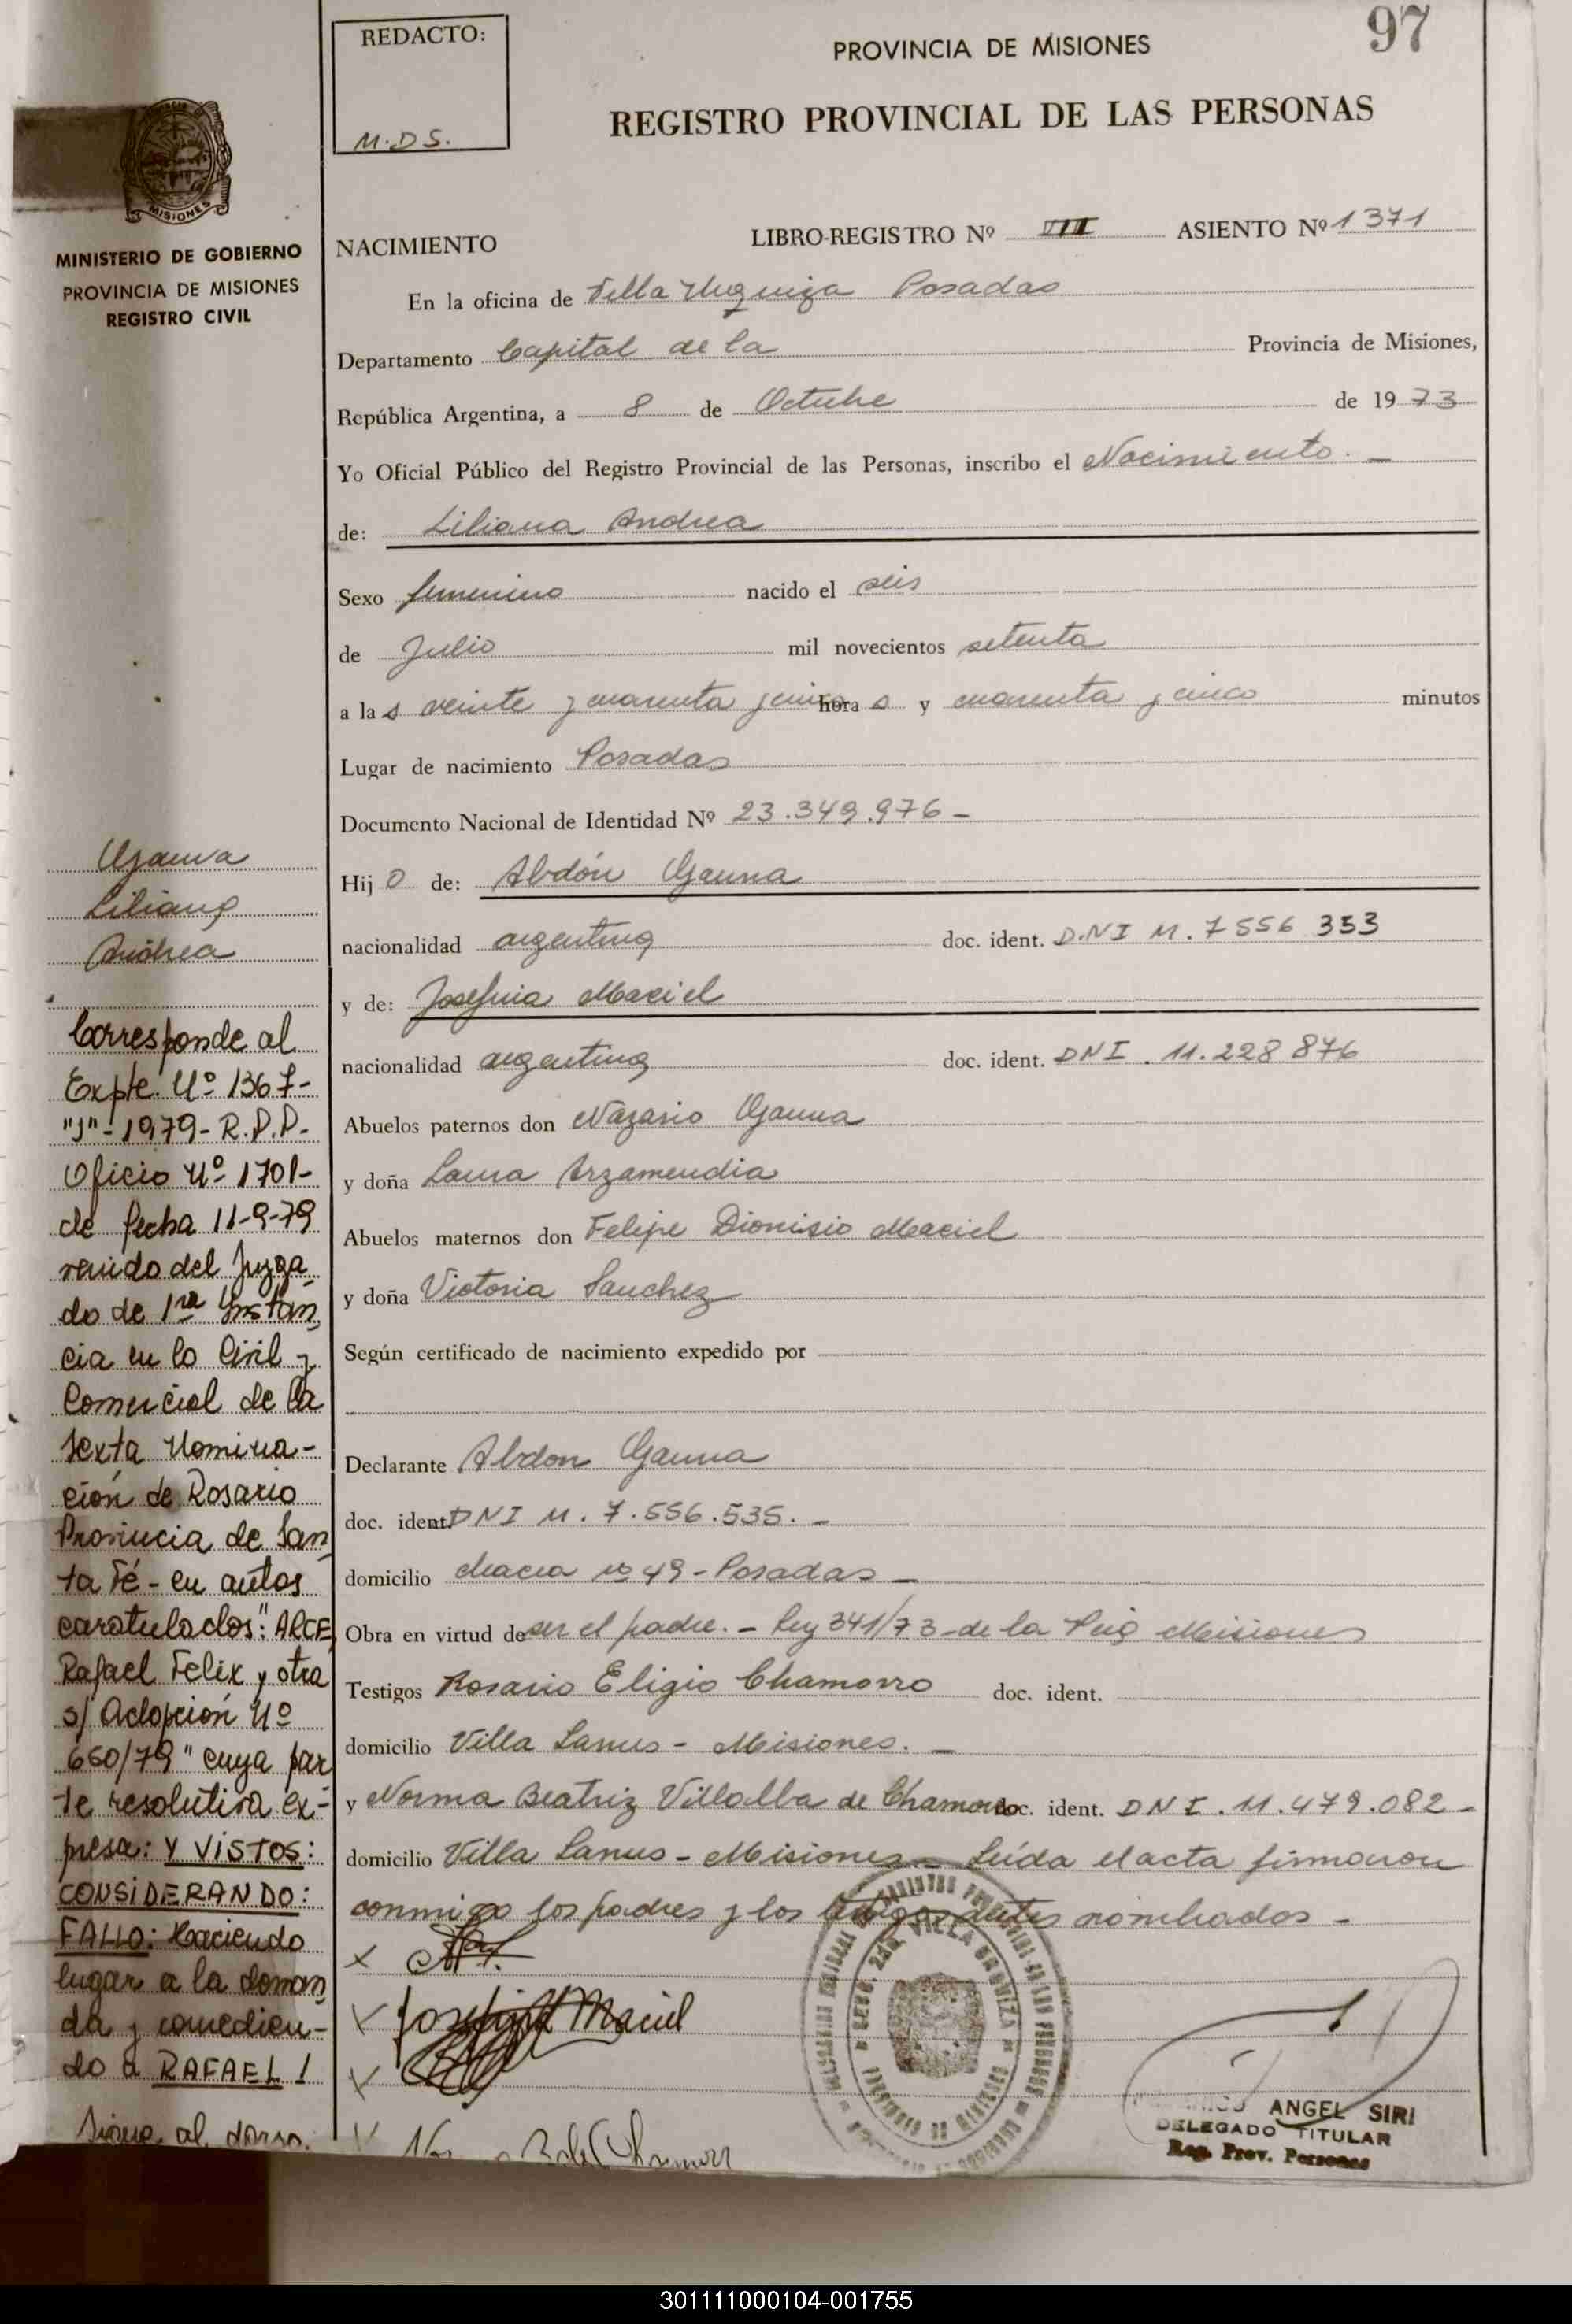 97
REDACTO:
M.D.S.
PROVINCIA DE MISIONES
REGISTRO PROVINCIAL DE LAS PERSONAS
MISIONES
MINISTERIO DE GOBIERNO
PROVINCIA DE MISIONES
REGISTRO CIVIL
NACIMIENTO LIBRO-REGISTRO Nº III ASIENTO Nº 1371
En la oficina de Villa Urquiza Posadas
Departamento Capital de la Provincia de Misiones,
República Argentina, a 8 de Octubre de 1973
Yo Oficial Público del Registro Provincial de las Personas, inscribo el Nacimiento. -
de: Liliana Andrea
Sexo femenino nacido el seis
de Julio mil novecientos setenta
a las veinte y cuarenta y cinco horas y cuarenta y cinco minutos
Lugar de nacimiento Posadas
Documento Nacional de Identidad Nº 23.349.976 -
Hijo de: Abdón Gauna
nacionalidad argentina doc. ident. D.NI M. 7556 353
y de: Josefina Maciel
nacionalidad argentina doc. ident. DNI . 11.228 876
Abuelos paternos don Nazario Gauna
y doña Laura Arzamendia
Abuelos maternos don Felipe Dionisio Maciel
y doña Victoria Sanchez
Según certificado de nacimiento expedido por
Declarante Abdon Gauna
doc. ident. DNI M. 7.556.535. -
domicilio chacra nº 49 - Posadas -
Obra en virtud de ser el padre. - Ley 341/73 - de la Misiones
Testigos Rosario Eligio Chamorro doc. ident.
domicilio Villa Lanus - Misiones. -
y Norma Beatriz Villalba de Chamorro doc. ident. DNI . 11.479.082 -
domicilio Villa Lanus - Misiones - Leída el acta firmaron
conmigo los padres y los testigos antes nombrados -
X
X Josefina Maciel
X
X
ANGEL SIRI
DELEGADO TITULAR
Reg. Prov. Personas
Gauna
Liliana
Andrea
Corresponde al
Expte. Nº 1367-
"J" - 1979 - R.P.P.-
Oficio Nº 1701-
de fecha 11-9-79
venido del Juzga
do de 1ra Instan
cia en lo Civil y
Comercial de la
Sexta Nomina-
ción de Rosario
Provincia de San
ta Fé - en autos
caratulados: "ARCE,
Rafael Felix y otra
s/ Adopción Nº
660/79" cuya par
te resolutiva ex-
presa: Y VISTOS:
CONSIDERANDO:
FALLO: Haciendo
lugar a la deman
da y concedien-
do a RAFAEL
Sigue al dorso.
301111000104-001755